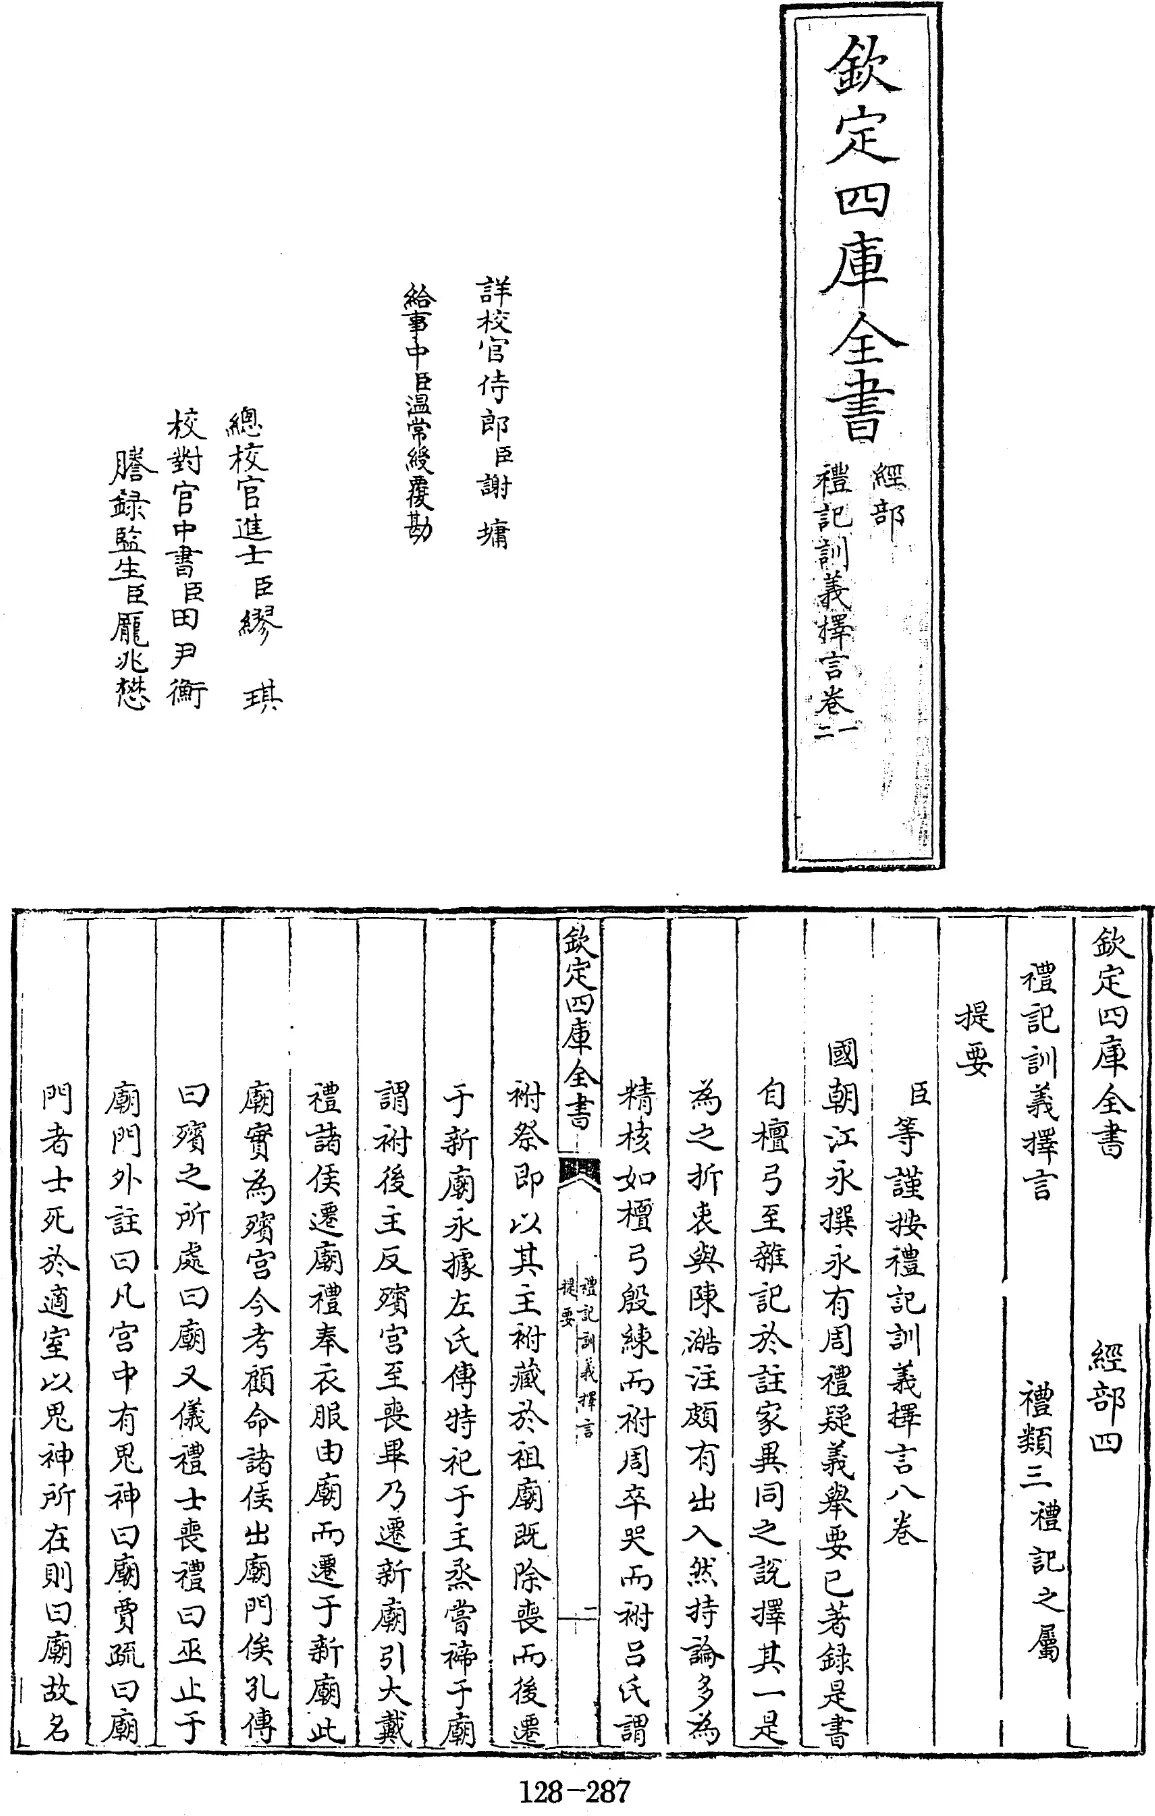 欽定四庫全書
經部
禮記訓義擇言卷一
二
詳校官侍郎臣謝墉
給事中臣温常綬覆勘
總校官進士臣繆琪
校對官中書臣田尹衡
謄録監生臣龐兆懋
欽定四庫全書 經部四
禮記訓義擇言 禮類三禮記之屬
提要
臣等謹按禮記訓義擇言八卷
國朝江永撰永有周禮疑義舉要已著録是書
自檀弓至雜記於註家異同之說擇其一是
為之折衷與陳澔注頗有出入然持論多為
精核如檀弓殷練而祔周卒哭而祔吕氏謂
欽定四庫全書
禮記訓義擇言
提要
一
祔祭即以其主祔藏於祖廟既除喪而後遷
于新廟永據左氏傳特祀于主烝嘗禘于廟
謂祔後主反殯宫至喪畢乃遷新廟引大戴
禮諸侯遷廟禮奉衣服由廟而遷于新廟此
廟實為殯宫今考顧命諸侯出廟門俟孔傳
曰殯之所處曰廟又儀禮士喪禮曰巫止于
廟門外註曰凡宫中有鬼神曰廟賈疏曰廟
門者士死於適室以鬼神所在則曰廟故名
128-287